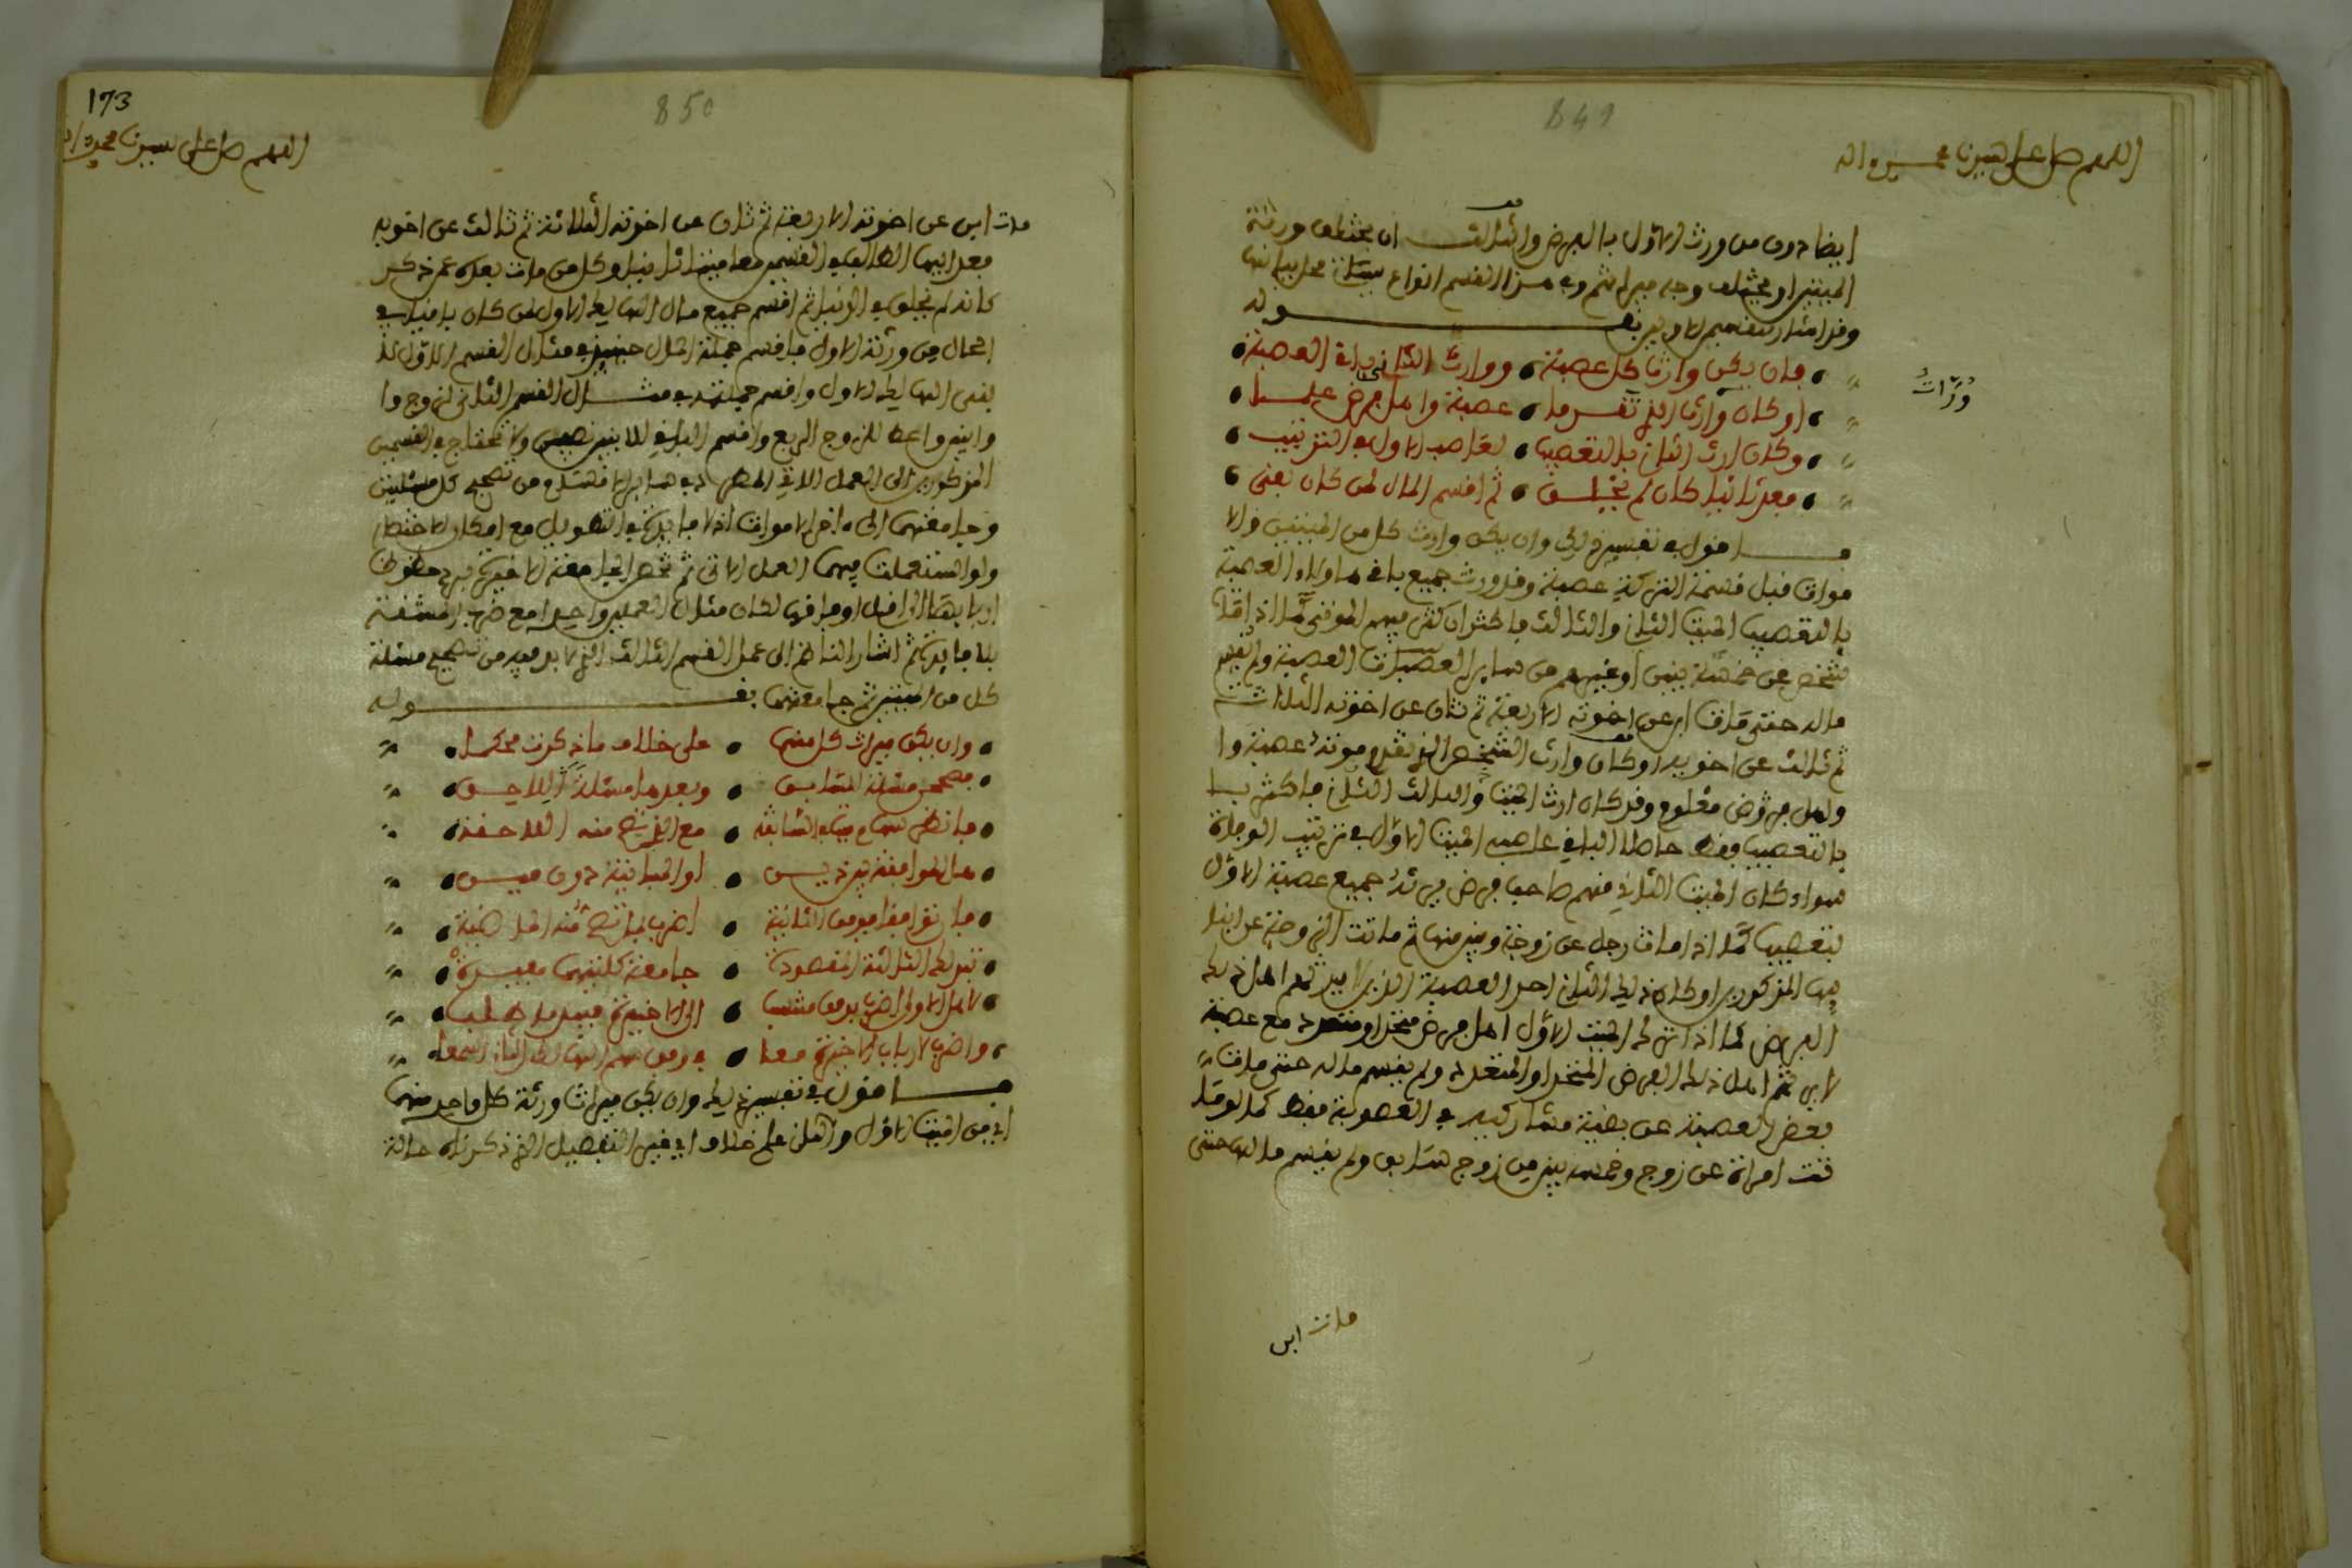 849
اللهم صل على سيدنا محمد واله
ايضا دون من ورث الاول بالفرض والثالث ان يختلف ورثة
الميتين او يختلف وجه ميراثهم وفي هذا القسم انواع ستاتي محل بيانها
وقد اشار للقسمين الاولين بقوله
فان يكن وارثا كل عصبة • ووارث الثاني باق العصبة
وراث
او كان وارث الذي تقدما • عصبة واهل فرض علما
وكان ارث الثان بالتعصيب • لعاصب الاول في الترتيب
فعد ثانيا كان لم يخلق • ثم اقسم المال لمن كان بقي
اقول في تفسير ذلك وان يكن وارث كل من الميتين والا
موات قبل قسمة التركة عصبة وقد ورث جميع باقي هاولاء العصبة
بالتعصيب الميت الثاني والثالث فاكثر ان كثر فيهم الموتى كما اذا مات
شخص عن خمسة بنين او غيرهم من سائر العصبات العصبة ولم يقسم
ماله حتى مات ابن عن اخوته الاربعة ثم ثان عن اخوته الثلاثة
ثم ثالث عن اخويه او كان وارث الشخص الذي تقدم موته عصبة وا
واهل فروض معلوم وقد كان ارث الميت والثالث الثاني فاكثر
بالتعصيب فقط حاصل الباقي عاصب الميت الاول في ترتيب الوفاة
سواء كان الميت الثاني منهم صاحب فرض يرثه جميع عصبة الاول
بتعصيب كما اذا مات رجل عن زوجة وبنين منها ثم ماتت الزوجة عن ابنا
يها المذكورين او كان ذلك الثاني احد العصبة الذين لا يرثهم اهل ذلك
الفرض كما اذا ترك الميت الاول اهل فرض متحد او متعدد مع عصبة
لا يرثهم اهل ذلك الفرض المتحد او المتعدد ولم يقسم ماله حتى مات
بعض العصبة عن بقية مشاركيه في العصوبة فقط كما لو ما
تت امراة عن زوج وخمسة بنين من زوج سابق ولم يقسم مالها حتى
مات ابن
850
173
اللهم صل على سيدنا محمد واله
مات ابن عن اخوته الاربعة ثم ثان عن اخوته الثلاثة ثم ثالث عن اخويه
فعد ايها الطالب في القسمين معا ميتا ثانيا وكل من مات بعده ممن ذكر
كانه لم يخلق في الدنيا ثم اقسم جميع مال الهالك الاول لمن كان باقيا في
الحال من ورثة الاول فاقسم جملة المال حينئذ في مثال القسم الاول لا
بني الهالك الاول واقسم جملته في مثال القسم الثاني لزوج وا
وابنين واعط للزوج الربع واقسم الباقي للابنين نصفين ولا تحتاج في القسمين
المذكورين الى العمل الاتي المطرد في سائر الاقسام من تصحيح كل مسئلتين
وجامعتهما الى ءاخر الاموات اذ لا فائدة في التطويل مع امكان الاختصار
ولو استعملت فيهما العمل الاتي ثم تختصر الجامعة الاخيرة برد حظوظ
اربابها الى اقل اوفاقها لكان مئال العملين واحدا مع ضرب ومشقة
بلا فائدة ثم اشار الناظم الى عمل القسم الثالث الذي لا بد فيه من تصحيح مسئلة
كل من الميتين ثم جامعتهما بقوله
وان يكن ميراث كل منهما • على خلاف ما ذكرت محكما
فصحح مسئلة السابق • وبعدها مسئلة اللاحق
فانظر سهام ميت السابقة • مع الذي تصح منه اللاحقة
هل الموافقة بين ذين • او المباينة دون مين
فان توافقا فوفق الثانية • اضرب لما تصح منه الماضية
تبد لك الثالثة المقصودة • جامعة كلتيهما مفيدة
لاهل الاولى اضرب بوفق مثبت • الى الاخيرة فبعد ما طلب
واضرب لارباب الاخيرة معا • في وفق سهم الهالك الثان اسمعا
اقول في تفسير ذلك وان يكن ميراث ورثة كل واحد منهما
اي من الميت الاول والثاني على خلاف اي غير التفصيل الذي ذكرناه حالة